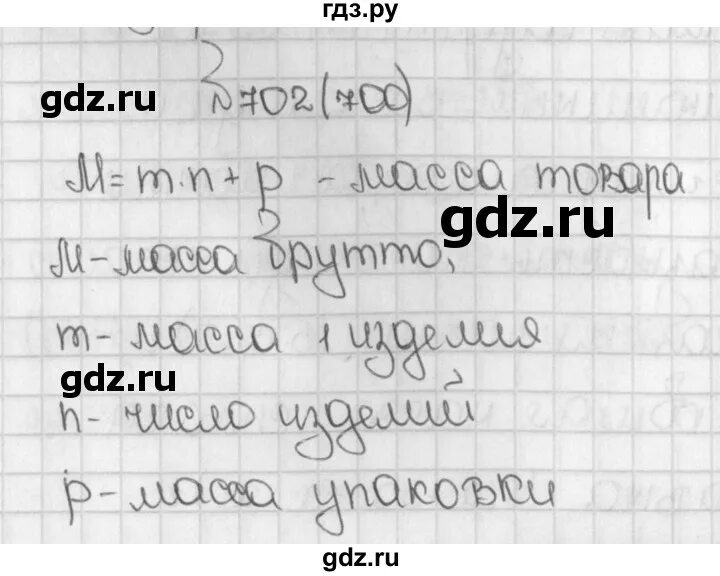 гдз.ру
gdz.ru
№702(700)
M=m·n+p - масса товара
gdz.ru
M-масса брутто,
m- масса 1 изделия
gdz.ru
n- число изделий
p-масса упаковки
gdz.ru